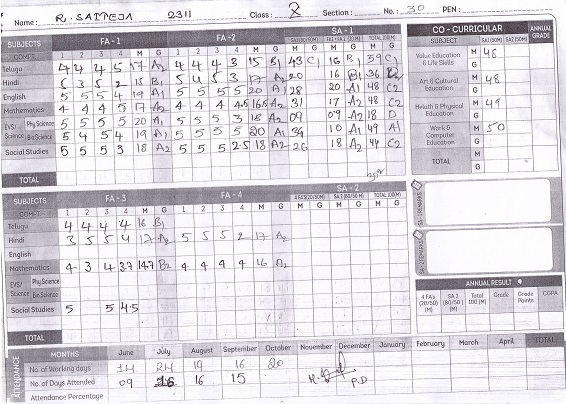 Name : R. SATTEJA 2311 Class : X Section : No. : 30 PEN :
SUBJECTS FA - 1 FA - 2 SA - 1
COMPT. 1 2 3 4 M G 1 2 3 4 M G M G M G TOTAL (100M) G
Telugu 4 4 4 5 17 A2 4 4 4 3 15 B1 43 C1 16 B1 59 C1
Hindi 5 3 5 2 15 B1 5 4 5 3 17 A2 20 16 B1 36
English 5 5 5 4 19 A1 5 5 5 5 20 A1 28 20 A1 48 C2
Mathematics 4 4 4 5 17 A2 4 4 4 4.5 16.5 A2 31 17 A2 48 C2
EVS/ Science Phy.Science 5 5 5 5 20 A1 5 5 5 3 18 A2 09 09 A2 18 D
Bio Science 5 4 5 4 19 A1 5 5 5 5 20 A1 39 10 A1 49 A1
Social Studies 5 5 5 3 18 A2 5 5 5 2.5 18 A2 26 18 A2 44 C2
TOTAL
CO - CURRICULAR ANNUAL GRADE
SUBJECT SA1 (50M) SA2 (50M)
Value Education & Life Skills M 48
G
Art & Cultural Education M 48
G
Helath & Physical Education M 49
G
Work & Computer Education M 50
G
TOTAL M
G
SUBJECTS FA - 3 FA - 4 SA - 2
COMPT. 1 2 3 4 M G 1 2 3 4 M G 4 FA'S (20/50M) SA 2 (80/50 M) TOTAL (100M)
Telugu 4 4 4 4 16 B1
Hindi 3 5 5 4 17 A2 5 5 5 2 17 A2
English
Mathematics 4 3 4 3.7 14.7 B2 4 4 4 4 16 A2
EVS/ Science Phy.Science
Bio Science
Social Studies 5 5 4.5
TOTAL
SA - 1 REMARKS
SA - 2 REMARKS
ANNUAL RESULT
4 FA's (20/50) (M) SA 2 (80/50) (M) Total 100 (M) Grade Grade Points CGPA
ATTENDANCE
MONTHS June July August September October November December January February March April TOTAL
No. of Working days 14 24 19 16 20
No. of Days Attended 09 16 16 15
P.D
Attendance Percentage